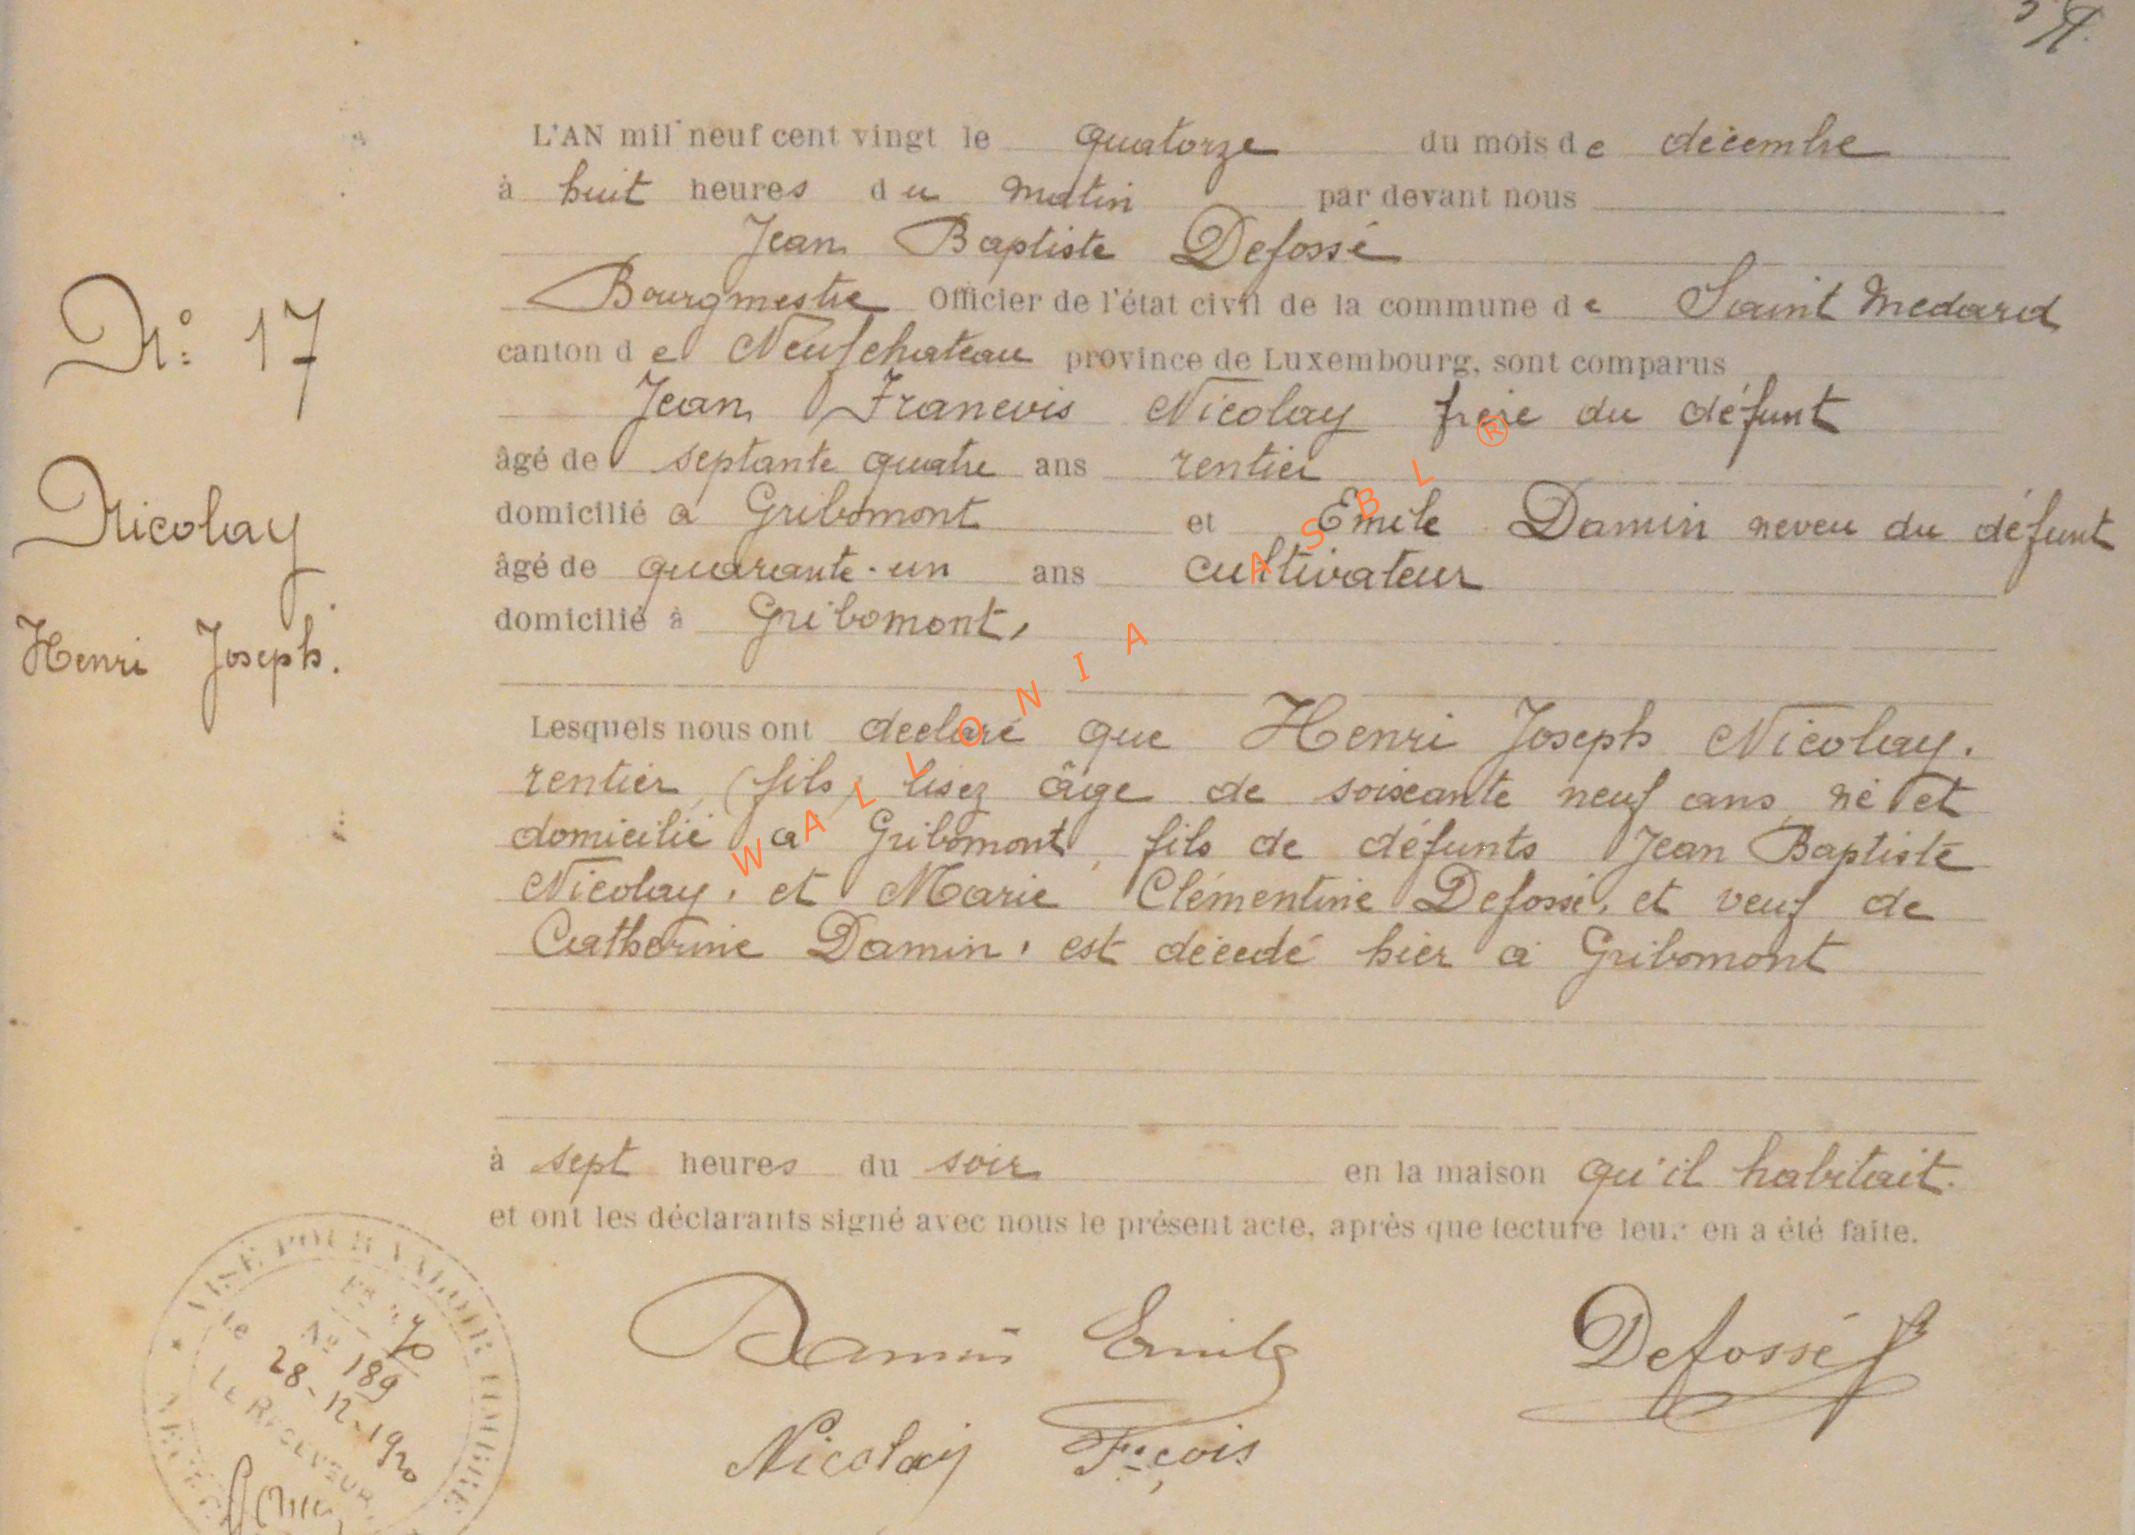 L'AN mil neuf cent vingt le quatorze du mois de décembre
à huit heures du matin par devant nous
Jean Baptiste Defossé
Bourgmestre Officier de l'état civil de la commune de Saint Medard
canton de Neufchateau province de Luxembourg, sont comparus
Jean Francois Nicolay frère du défunt
âgé de septante quatre ans rentier
domicilié a Gribomont et Emile Damin neveu du défunt
âgé de quarante-un ans cultivateur
domicilié à Gribomont,
N° 17
Nicolay
Henri Joseph.
Lesquels nous ont declaré que Henri Joseph Nicolay.
rentier, (fils) lisez âge de soixante neuf ans, né et
domicilié a Gribomont, fils de défunts Jean Baptiste
Nicolay, et Marie Clémentine Defossé, et veuf de
Catherine Damin, est décedé hier a Gribomont
à sept heures du soir en la maison qu'il habitait.
et ont les déclarants signé avec nous le présent acte, après que lecture leur en a été faite.
Damin Emile Defossé
Nicolay Fçois
VISÉ POUR VALOIR TIMBRE
N° 189
le 28-12-1920
LE RECEVEUR
WALLONIA ASBL ®